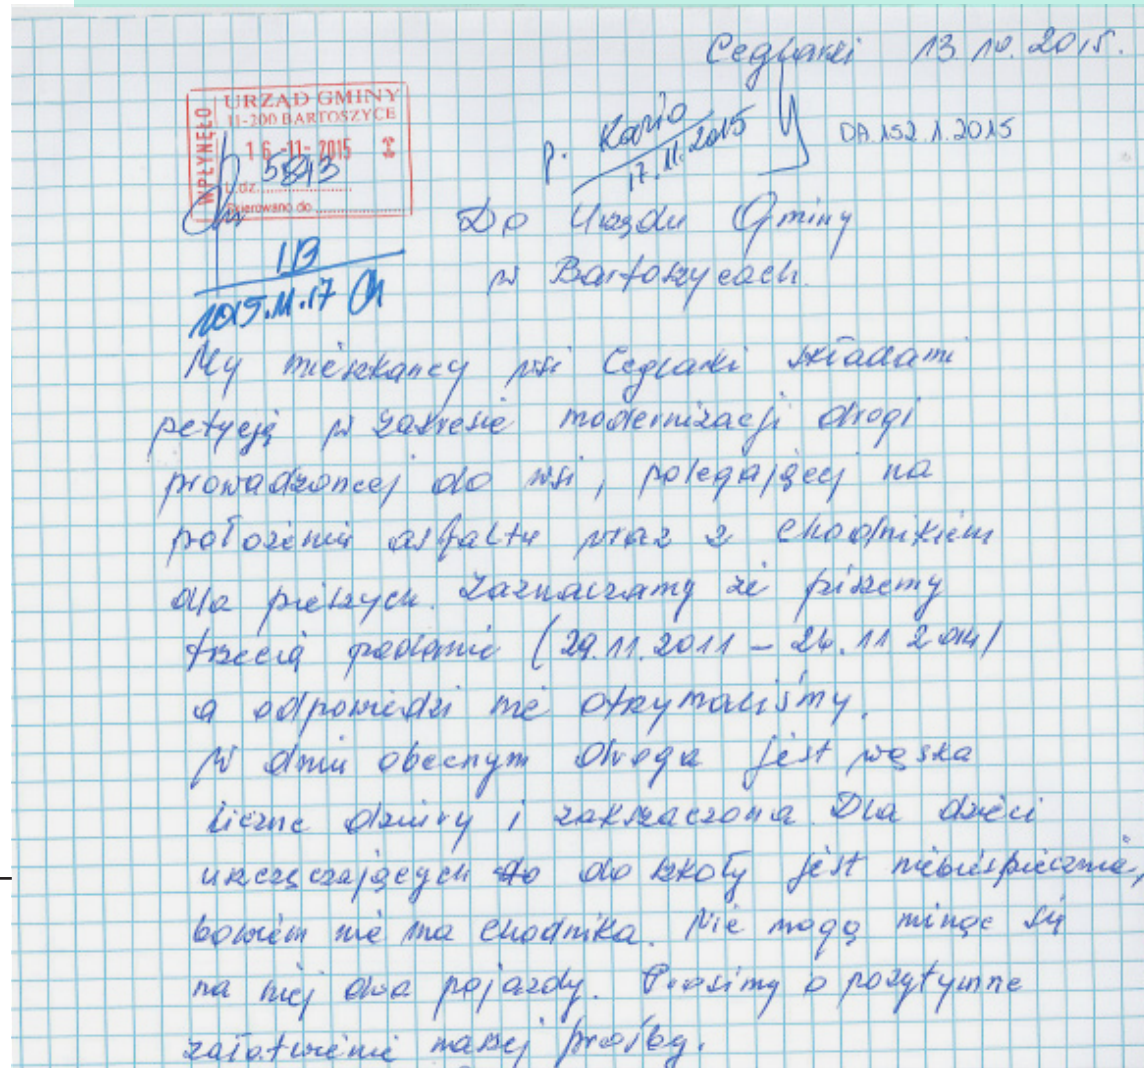 Ceglarki 13.10.2015.
URZĄD GMINY
11-200 BARTOSZYCE
WPŁYNĘŁO
16-11-2015
L.dz. 5893
Skierowano do
p. Kario
17.11.2015
DA.152.1.2015
Do Urzędu Gminy
w Bartoszycach.
2015.11.17
My mieszkańcy wsi Ceglarki składami
petycją w zakresie modernizacji drogi
prowadzoncej do wsi, polegającej na
położeniu asfaltu wraz z chodnikiem
dla pieszych. Zaznaczamy że piszemy
trzecią podanie (29.11.2011 – 26.11 2014)
a odpowiedzi nie otrzymaliśmy.
W dniu obecnym droga jest wąska
liczne dziury i zakrzaczona. Dla dzieci
uszczęczających do szkoły jest niebiespiecznie,
bowiem nie ma chodnika. Nie mogą minąć się
na niej dwa pojazdy. Prosimy o pozytywne
załatwienie naszej prośby.